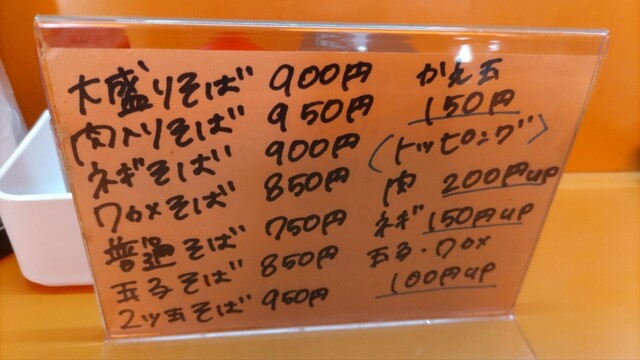 大盛りそば 900円
肉入りそば 950円
ネギそば 900円
ワカメそば 850円
普通そば 750円
玉子そば 850円
2ツ玉そば 950円
かえ玉
150円
〈トッピング〉
肉 200円up
ネギ 150円up
玉子・ワカメ
100円up